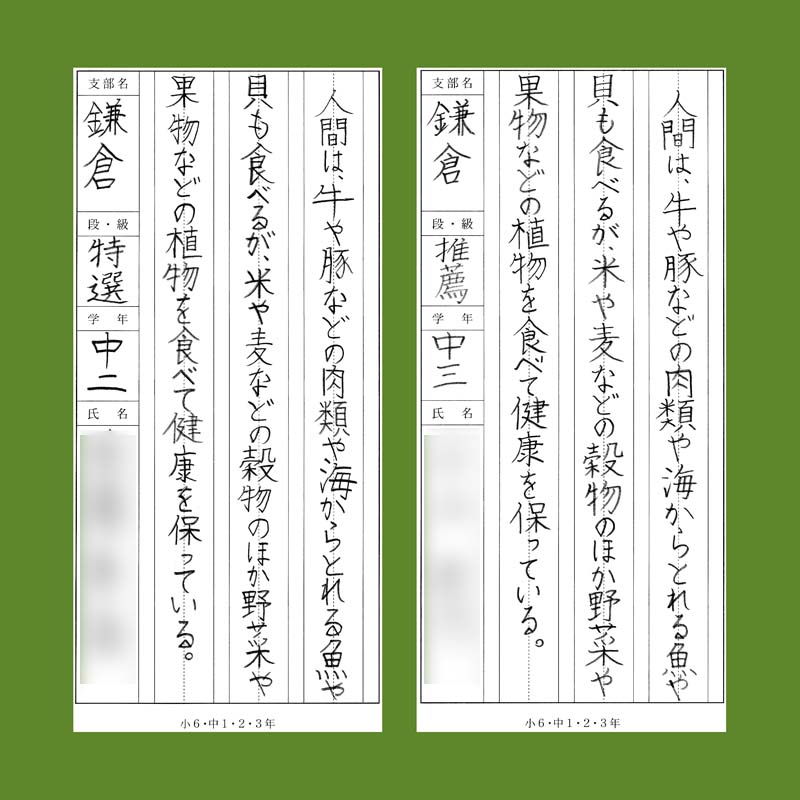 人間は、牛や豚などの肉類や海からとれる魚や
貝も食べるが、米や麦などの穀物のほか野菜や
果物などの植物を食べて健康を保っている。
支部名
鎌倉
段・級
特選
学年
中二
氏名
小6・中1・2・3年
人間は、牛や豚などの肉類や海からとれる魚や
貝も食べるが、米や麦などの穀物のほか野菜や
果物などの植物を食べて健康を保っている。
支部名
鎌倉
段・級
推薦
学年
中三
氏名
小6・中1・2・3年